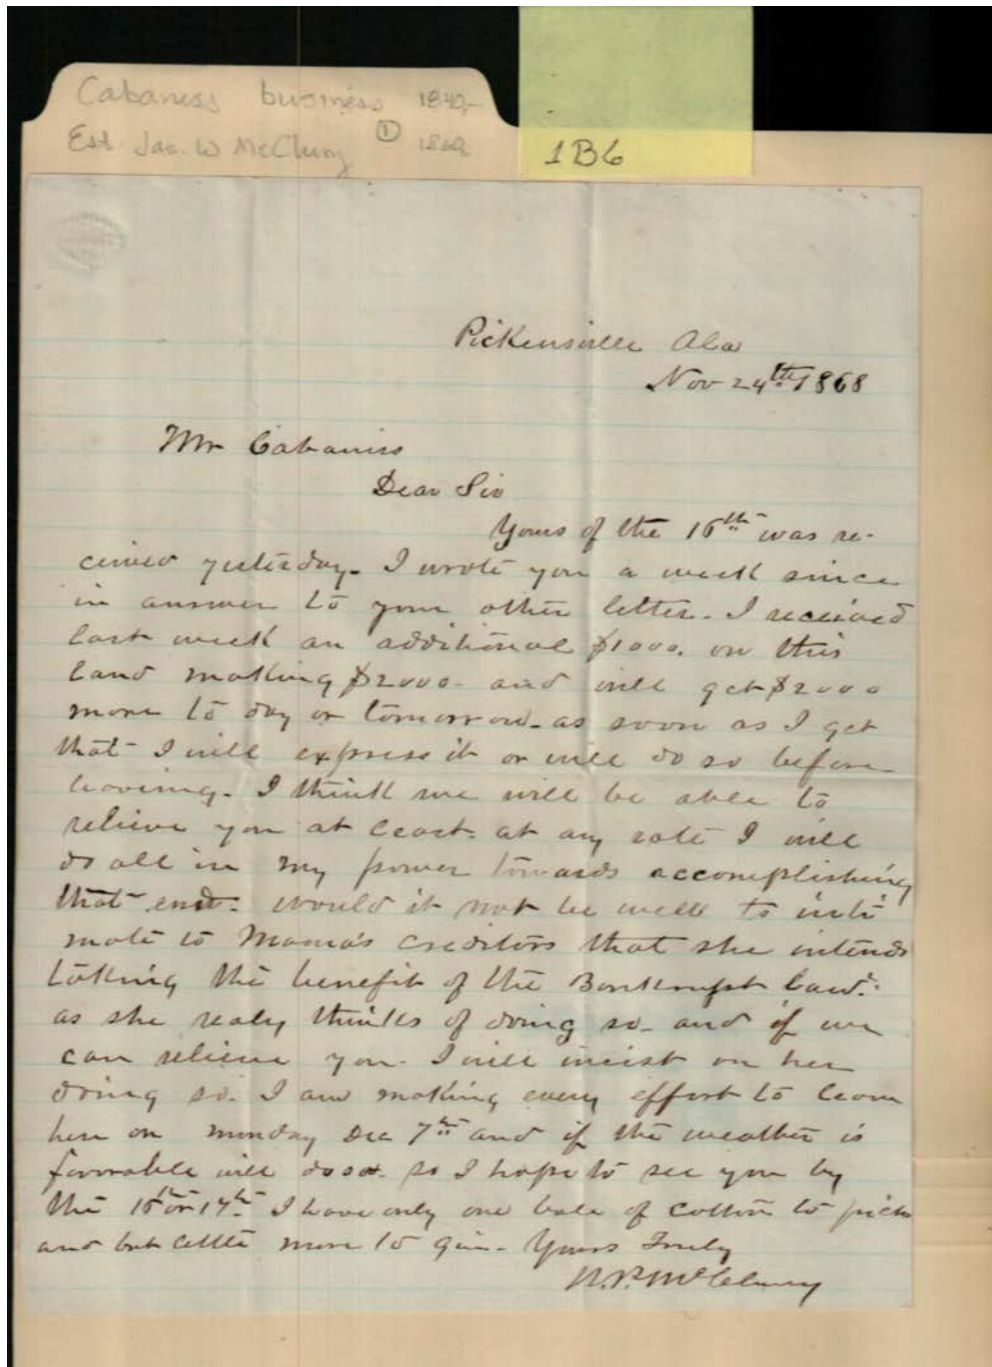 Cabaniss business 1840-
Est. Jas. W McClung ① 1860
1B6
Pickensville Ala
Nov 24th 1868
Mr Cabaniss
Dear Sir
Yours of the 16th was re-
ceived yesterday. I wrote you a week since
in answer to your other letter. I received
last week an additional $1000. on this
land making $2000. and will get $2000
more to day or tomorrow. as soon as I get
that I will express it or will do so before
leaving. I think we will be able to
relieve you at least. at any rate I will
do all in my power towards accomplishing
that end. would it not be well to inti
mate to Mama's creditors that she intends
taking the benefit of the Bankrupt Law.
as she realy thinks of doing so. and if we
can relieve you. I will insist on her
doing so. I am making every effort to leave
here on monday Dec 7th and if the weather is
favorable will do so. so I hope to see you by
the 16th or 17th. I have only one bale of cotton to pick
and but little more to gin. Yours Truly
McClung